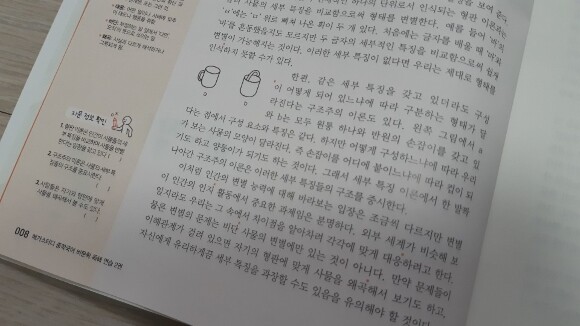 단위로 인식되는 형판 이론과는
사물의 세부 특징을 비교함으로써 형태를 변별한다. 예를 들어
'ㅁ' 위로 빠져 나온 획이 두 개 있다. 처음에는 글자를 배울 때
손동들일지도 모르지만 두 글자의 세부적인 특징을 비교함으로써 쉽게
변별이 가능해지는 것이다. 이러한 세부 특징이 없다면 우리는 제대로 형태를
인식하지 못할 수가 있다.
한편, 같은 세부 특징을 갖고 있더라도 구성
이 어떻게 되어 있느냐에 따라 구분하는 형태가 달
라진다는 구조주의 이론도 있다. 왼쪽 그림에서 a
와 b는 모두 원통 하나와 반원의 손잡이를 갖고 있
다는 점에서 구성 요소와 특징은 같다. 하지만 어떻게 구성하느냐에 따라 우리
가 보는 사물의 모양이 달라진다. 즉 손잡이를 어디에 붙이느냐에 따라 컵이 되
기도 하고 양동이가 되기도 하는 것이다. 그래서 세부 특징 이론에서 한 발짝
나아간 구조주의 이론은 이러한 세부 특징들의 구조를 중시한다.
이처럼 인간의 변별 능력에 대해 바라보는 입장은 조금씩 다르지만 변별
이 인간의 인지 활동에서 중요한 과제임은 분명하다. 외부 세계가 비슷해 보
일지라도 우리는 그 속에서 차이점을 알아차려 각각에 맞게 대응하려고 한다.
물론 변별의 문제는 비단 사물의 변별에만 있는 것이 아니다. 만약 문제들이
이해관계가 걸려 있으면 자기의 형판에 맞게 사물을 왜곡해서 보기도 하고,
자신에게 유리하게끔 세부 특징을 과장할 수도 있음을 유의해야 할 것이다.
a
b
지문 정보 확인
1. 형판 이론은 인간이 사물들의 세
부 특징을 비교하여 사물을 변별
한다는 입장을 갖고 있다. (
2. 구조주의 이론은 사물의 세부 특
징들의 구조를 중시한다.
3. 사람들은 자기의 형판에 맞게
사물을 왜곡해서 볼 수도 있다.
008
메가스터디 중학국어 비문학 독해 연습 2권